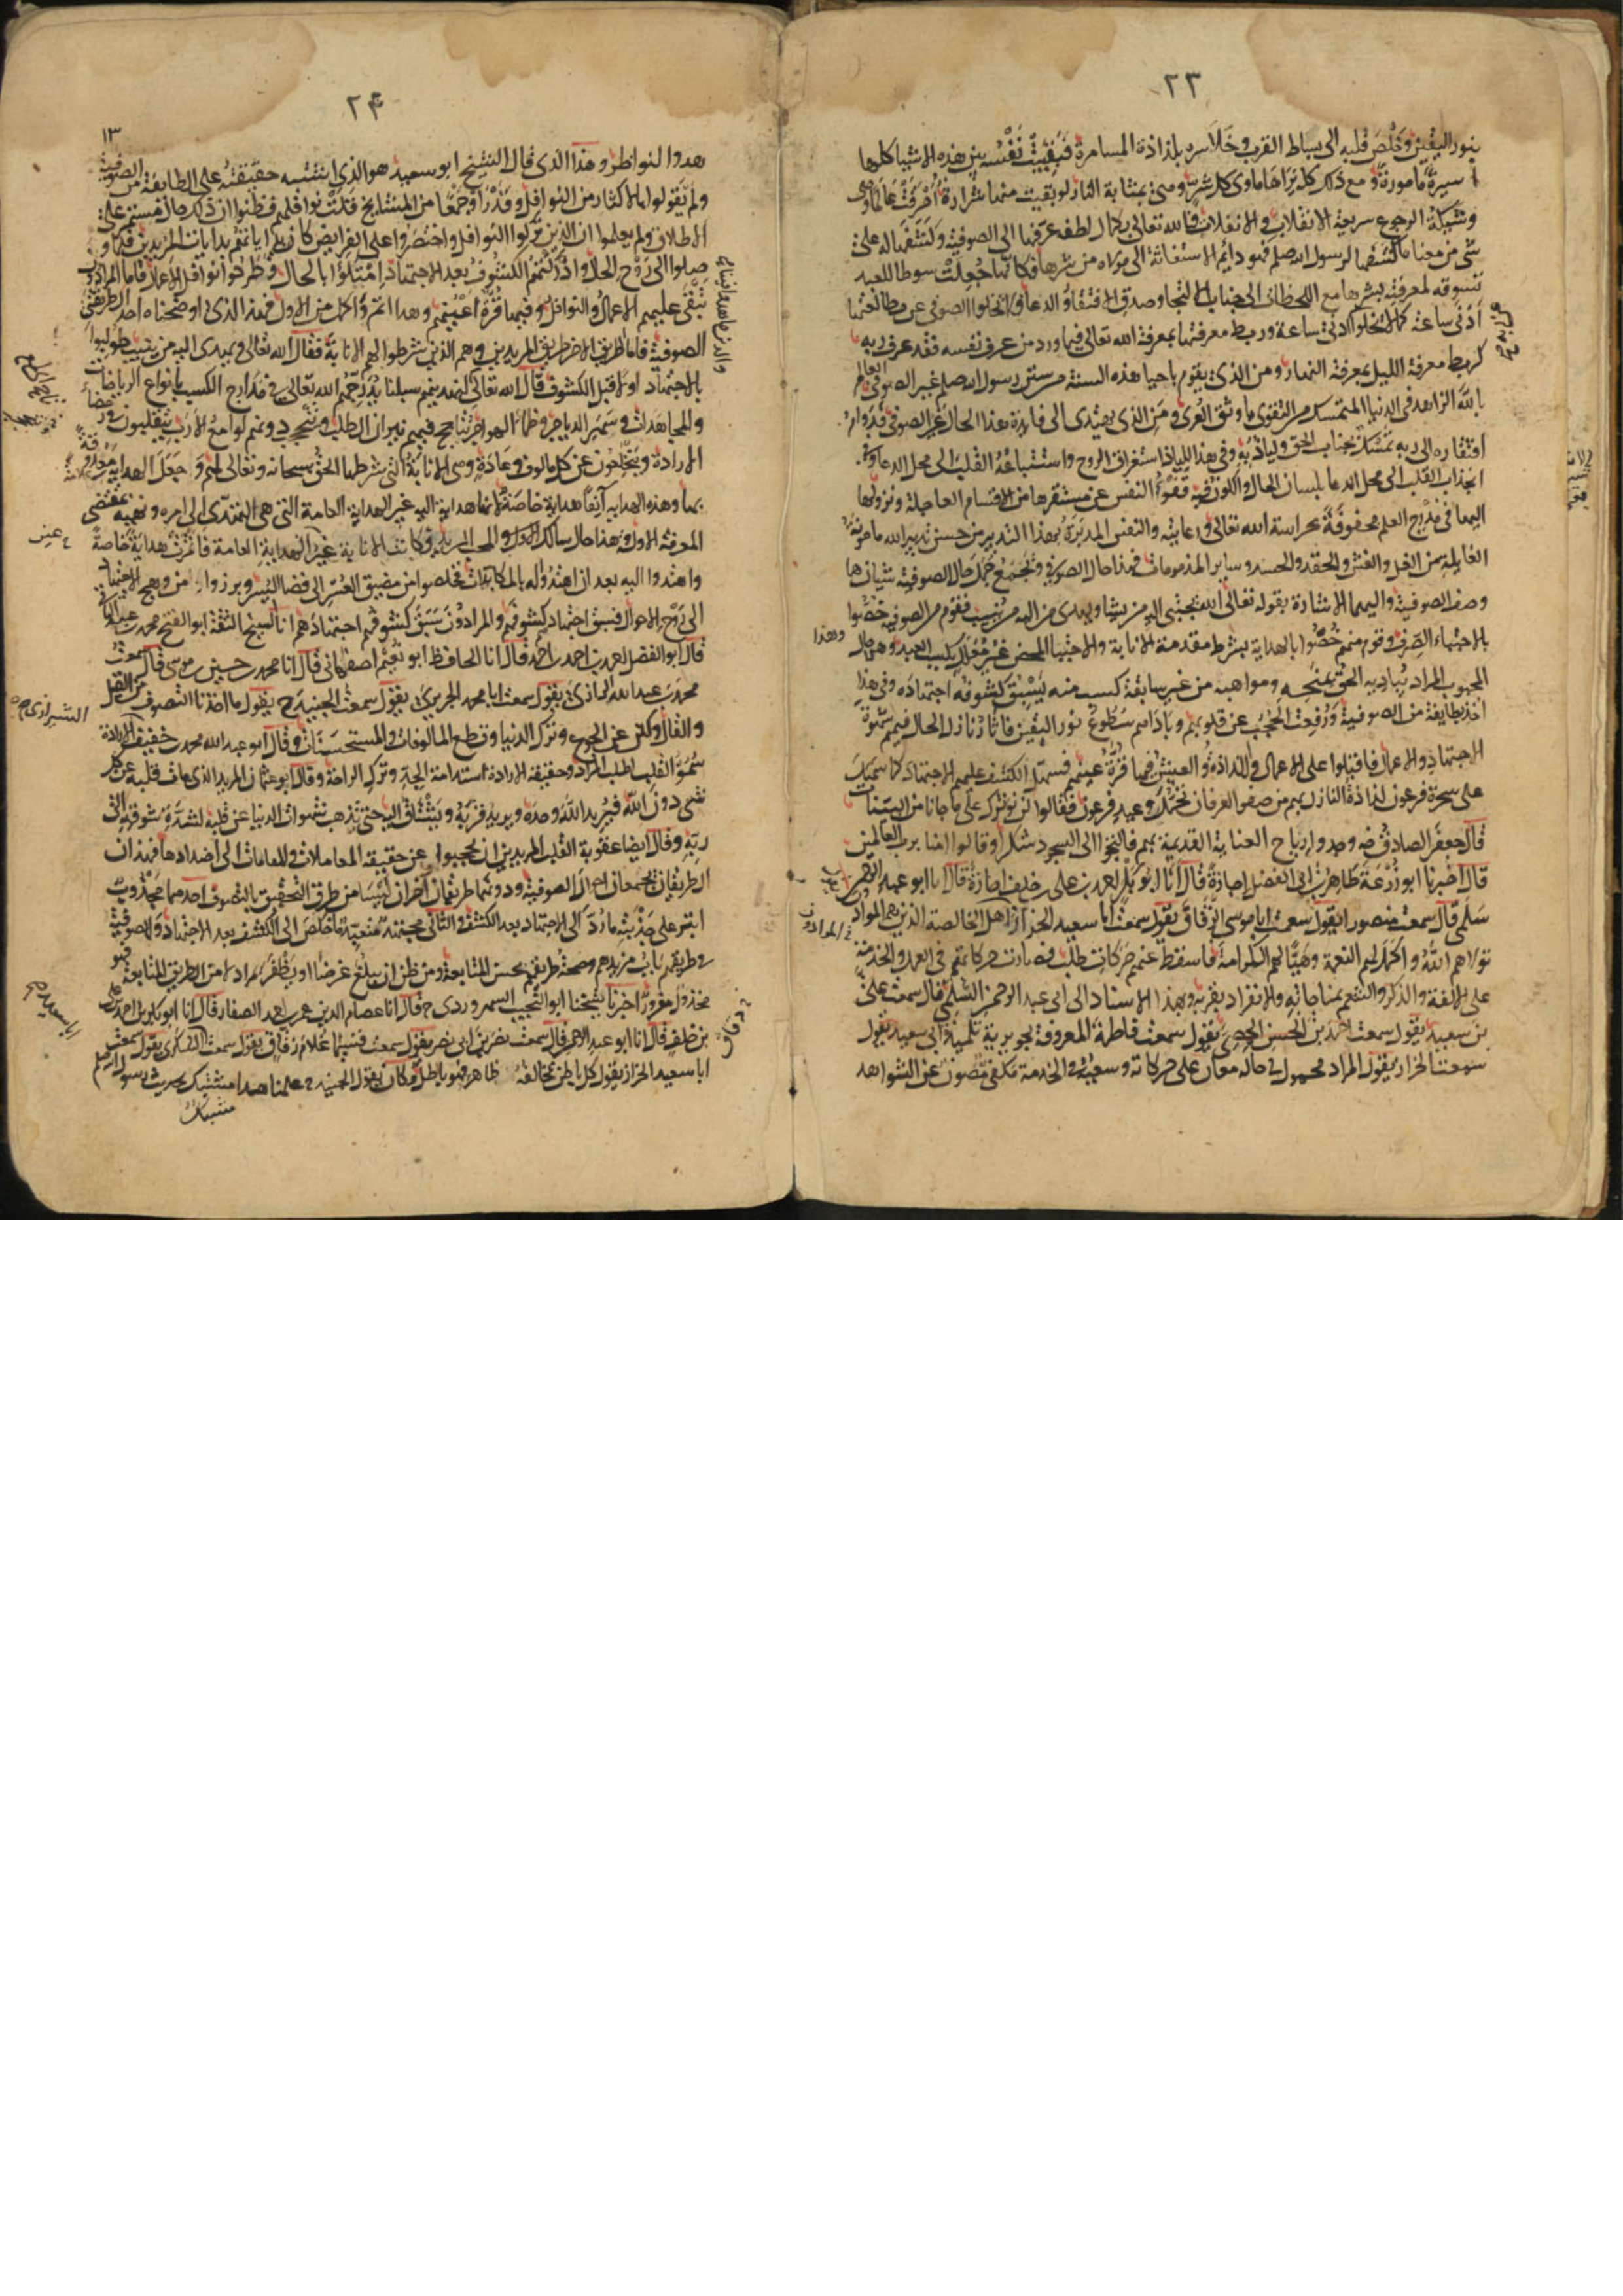 ٢٣
بنور اليقين وخلص قلبه الى بساط القرب وخلا سره بلذاذة المسامرة فبقيت نفسه بين هذه الاشيا كلها
اسيرة مامورة ومع ذلك كله يراها ماوى كل شر وهى بمثابة النار لو بقيت منها شرارة احرقت عالما وهى
وشيكة الرجوع سريعة الانفلات والانقلاب فالله تعالى بكمال لطفه عرفها الى الصوفية وكشفها له على
شى من معنا ما كشفها لرسول الله صلم فهو دائم الاستغاثة الى مولاه من شرها فكانها جعلت سوطا للعبد
تسوقه لمعرفته بشرها مع اللحظات الى جناب الالتجا وصدق الافتقار والدعا فلا تخلوا الصوفى عن مطالعتها
ادنى ساعة كما لا تخلوا ادنى ساعة وربط معرفتها بمعرفة الله تعالى فيما ورد من عرف نفسه فقد عرف ربه
كربط معرفة الليل بمعرفة النهار ومن الذى يقوم باحيا هذه السنة من سنن رسول الله صلم غير الصوفى العالم
بالله الزاهد فى الدنيا المتمسك من التقوى باوثق العرى ومن الذى يهتدى الى فايدة هذا الحال غير الصوفى فدوام
افتقاره الى ربه تمسك بجناب الحق ولياذ به وفى هذا اللياذ استغراق الروح واستتباعه القلب الى محل الدعا وفى
انجذاب القلب الى محل الدعا بلسان الحال والكون فيه نبو النفس عن مستقرها من الاقسام العاجلة ونزولها
اليها فى مدارج العلم محفوفة بحراسة الله تعالى ورعايته والنفس المدبرة بهذا التدبير من حسن تدبير الله مامونة
الغايلة من الغل والغش والحقد والحسد وساير المذمومات فهذا حال الصوفى ويجمع جمل حال الصوفية شيئان هما
وصف الصوفية واليهما الاشارة بقوله تعالى الله يجتبى اليه من يشا ويهدى من اليه من ينيب فقوم من الصوفية خصوا
بالاجتباء الصرف وقوم منهم خصوا بالهداية بشرط مقدمة الانابة والاجتبا المحض غير معلل بكسب العبد وهذا حال
المحبوب المراد يباديه الحق بمنحه ومواهبه من غير سابقة كسب منه يسبق كشوفه اجتهاده وفى هذا
اخذ بطايفة من الصوفية ورفعت الحجب عن قلوبهم وباداهم سطوع نور اليقين فاثار نازل الحال فيهم شهوة
الاجتهاد والاعمال فاقبلوا على الاعمال واللذاذة والعيش فيها قرة عينهم فسهل الكشف عليهم الاجتهاد كما سهل
على سحرة فرعون لذاذة النازل بهم من صفو العرفان تحمل وعيد فرعون فقالوا لن نوثرك على ما جانا من البينات
قال جعفر الصادق رضه وجدوا ارياح العناية القديمة بهم فالتجوا الى السجود شكرا وقالوا امنا برب العالمين
قال اخبرنا ابو زرعة طاهر بن ابى الفضل اجازة قال انا ابو بكر احمد بن على بن خلف اجازة قال انا ابو عبد الرحمن
سلمى قال سمعت منصورا يقول سمعت ابا موسى الزقاق يقول سمعت ابا سعيد الخراز اهل الخالصة الذين هم المراد
تولاهم الله واكمل لهم النعمة وهيا لهم الكرامة فاسقط عنهم حركات طلب فصارت حركاتهم فى العمل والخدمة
على الالفة والذكر والتنعم بمناجاته والانفراد بقربه وبهذا الاسناد الى ابى عبد الرحمن السلمى قال سمعت على
بن سعيد يقول سمعت احمد بن الحسن الحمصى يقول سمعت فاطمة المعروفة بجويرية تلميذة ابى سعيد يقول
سمعت الخراز يقول المراد محمول فى حاله معان على حركاته وسعيه فى الخدمة مكفى مصون عن الشواهد
وهذا
المرادون
٢٤
١٣
هدوا لنواظر وهذا الذى قال الشيخ ابو سعيد هو الذى اشتبه حقيقته على الطايفة من الصوفية
ولم يقولوا بالاكثار من النوافل وقد راوا جمعا من المشايخ قلت نوافلهم فظنوا ان ذلك حال مستمر على
الاطلاق ولم يعلموا ان الذين تركوا النوافل واختصروا على الفرايض كانت بداياتهم بدايات المريدين فلما و
صلوا الى روح الحال وادركتهم الكشوف بعد الاجتهاد امتلؤا بالحال وطرحوا نوافل الاعمال فاما المرادون
تبقى عليهم الاعمال والنوافل وفيها قرة اعينهم وهذا اتم واكمل من الاول فهذا الذى اوضحناه احد الطريقى
الصوفية فاما طريق الاخر طريق المريدين وهم الذين شرطوا لهم الانابة فقال الله تعالى ويهدى اليه من ينيب طولبوا
بالاجتهاد اولا قبل الكشوف قال الله تعالى لنهدينهم سبلنا يدرجهم الله تعالى فى مدارج الكسب بانواع الرياضات
والمجاهدات وسهر الدياجر وظما الهواجر تتاجج فيهم نيران الطلب وتتحجب دونهم لوامع الارب يتقلبون فى رمضاء
الارادة ويتخلعون عن كل مالوف وعادة وهى الانابة التى شرطها الحق سبحانه وتعالى لهم وجعل الهداية مقرونة
بها وهذه الهداية آنفا هداية خاصة لانها هداية اليه غير الهداية العامة التى هى الهتدى الى امره ونهيه بمقتضى
المعرفة الاولى وهذا حال السالك المحب المريد وكانت الانابة غير الهداية العامة فاثمرت هداية خاصة
واهتدوا اليه بعد ان اهتدوا له بالمكابدات فخلصوا من مضيق العسر الى فضا اليسر وبرزوا من وهج الاجتهاد
الى روح الاحوال فسبق اجتهادهم كشوفهم والمرادون سبق كشوفهم اجتهادهم انا الشيخ الثقة ابو الفتح محمد بن عبد الباقى
قال ابو الفضل احمد بن احمد قال انا الحافظ ابو نعيم اصفهانى قال انا محمد بن حسين بن موسى قال سمعت
محمد بن عبد الله الرازى يقول سمعت ابا محمد الجريرى يقول سمعت الجنيد رح يقول ما اخذنا التصوف عن القيل
والقال ولكن عن الجوع وترك الدنيا وقطع المالوفات والمستحسنات وقال ابو عبد الله محمد بن خفيف الارادة
سمو القلب لطلب المراد وحقيقة الارادة استدامة الجد وترك الراحة وقال ابو عثمان المريد الذى مات قلبه عن كل
شى دون الله فيريد الله وحده ويريد قربه ويشتاق اليه حتى تذهب شهوات الدنيا عن قلبه لشدة شوقه الى
ربه وقال ايضا عقوبة القلب المريدين ان يحجبوا عن حقيقة المعاملات والمقامات الى اضدادها فهذان
الطريقان يجمعان احوال الصوفية ودونهما طريقان آخران ليسا من طرق التحقيق بالتصوف احدهما مجذوب
ابقى على جذبته ما رد الى الاجتهاد بعد الكشف والثانى مجتهد متعبد ما خلص الى الكشف بعد الاجتهاد والصوفية
فى طريقهم باب مزيدهم وصحة طريقهم بحسن المتابعة ومن ظن ان يبلغ غرضا او يظفر بمراد لا من الطريق المتابعة فهو
مخذول مغرور اخبرنا شيخنا ابو النجيب السهروردى قال انا عصام الدين عمر بن احمد الصفار قال انا ابو بكر بن احمد بن على
بن خلف قال انا ابو عبد الرحمن قال سمعت نصر بن ابى نصر يقول سمعت قسيما غلام زقاق يقول سمعت ابا سعيد السكرى يقول سمعت
ابا سعيد الخراز يقول كل باطن يخالفه ظاهر فهو باطل وكان يقول الجنيد رح علمنا هذا مشتبك بحديث رسول الله صلم
مشتبك
غير
الشيرازى رح